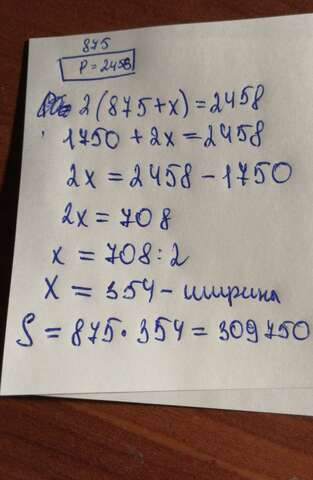 875
P = 2458
2(875+x)=2458
1750 + 2x = 2458
2x = 2458 - 1750
2x = 708
x = 708 : 2
x = 354 - ширина
S = 875 · 354 = 309750